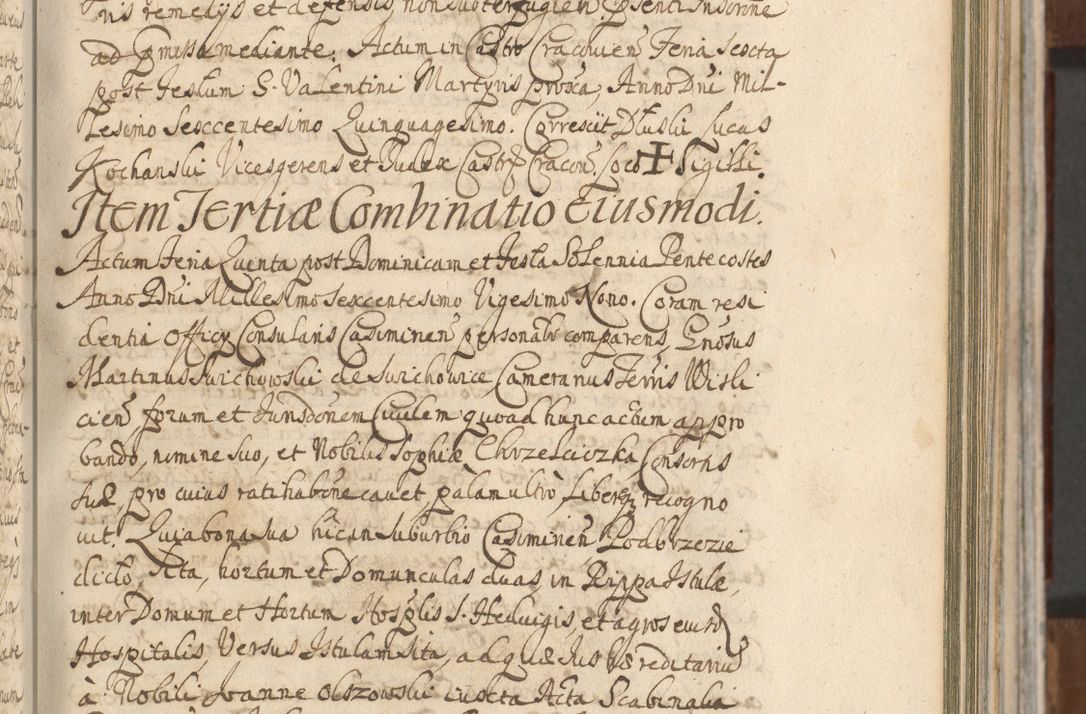 ris remedijs et defensis, non subterfugien̄ pn̄senti Insc̄rōne
ad P̱missa mediante. Actum in Castro Cracouien̄ Feria Sexta
post Festum S. Valentini Martyris proxa, Anno Dn̄i Mil-
lesimo Sexcentesimo Quinquagesimo. Correxit Dłuski Lucas
Kochanski Vicesgerens et Iudex Castr̄ Cracou. Loco ✝ Sigilli.
Item Tertiæ Combinatio Eiusmodi.
Actum Feria Quinta post Dominicam et Festa Solennia Pentecostes
Anno Dn̄i Millesimo Sexcentesimo Vigesimo Nono. Coram resi
dentia Officij Consularis Casiminen̄ personalr̄ comparens, Gn̄osus
Martinus Swichowski de Swichowice, Cameranus Terr̄is Wisli
cien̄ forum et Iurisdōnem Ciuilem quoad hunc actum appro
bando, nomine suo, et Nobilis Sophiæ Chrzelciczka Consortis
suæ, pro cuius ratihabōne cauet palam ultrò, Libereq̄ recogno
uit. Quia bona sua hîc in suburbio Casiminen̄ Podbrzezie
dicto, sita, hortum et Domunculas duas, in Rippa Istulæ,
inter Domum et Hortum Hosp̄lis S. Heduigis, et agros eiusd̄
Hospitalis, Versus Istulam sita, ad quæ Ius hæreditariū
à Nobili Joanne Olszowski iuxta Acta Scabinalia